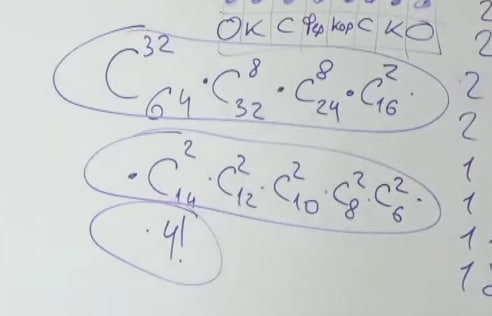 О К С Фер Кор С К О
C₆₄³² · C₃₂⁸ · C₂₄⁸ · C₁₆² ·
· C₁₄² · C₁₂² · C₁₀² · C₈² · C₆² ·
· 4!
2
2
2
2
1
1
1
1